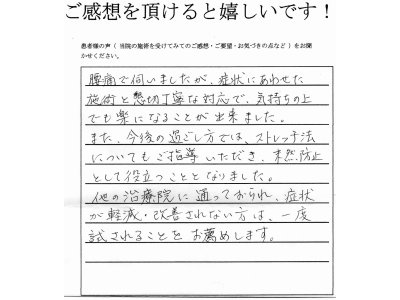 ご感想を頂けると嬉しいです！
患者様の声（ 当院の施術を受けてみてのご感想・ご要望・お気づきの点など ）をお聞
かせください。
腰痛で伺いましたが、症状にあわせた
施術と懇切丁寧な対応で、気持ちの上
でも楽になることが出来ました。
また、今後の過ごし方では、ストレッチ法
についてもご指導いただき、未然防止
として役立つこととなりました。
他の治療院に通っておられ、症状
が軽減・改善されない方は、一度
試されることをお薦めします。